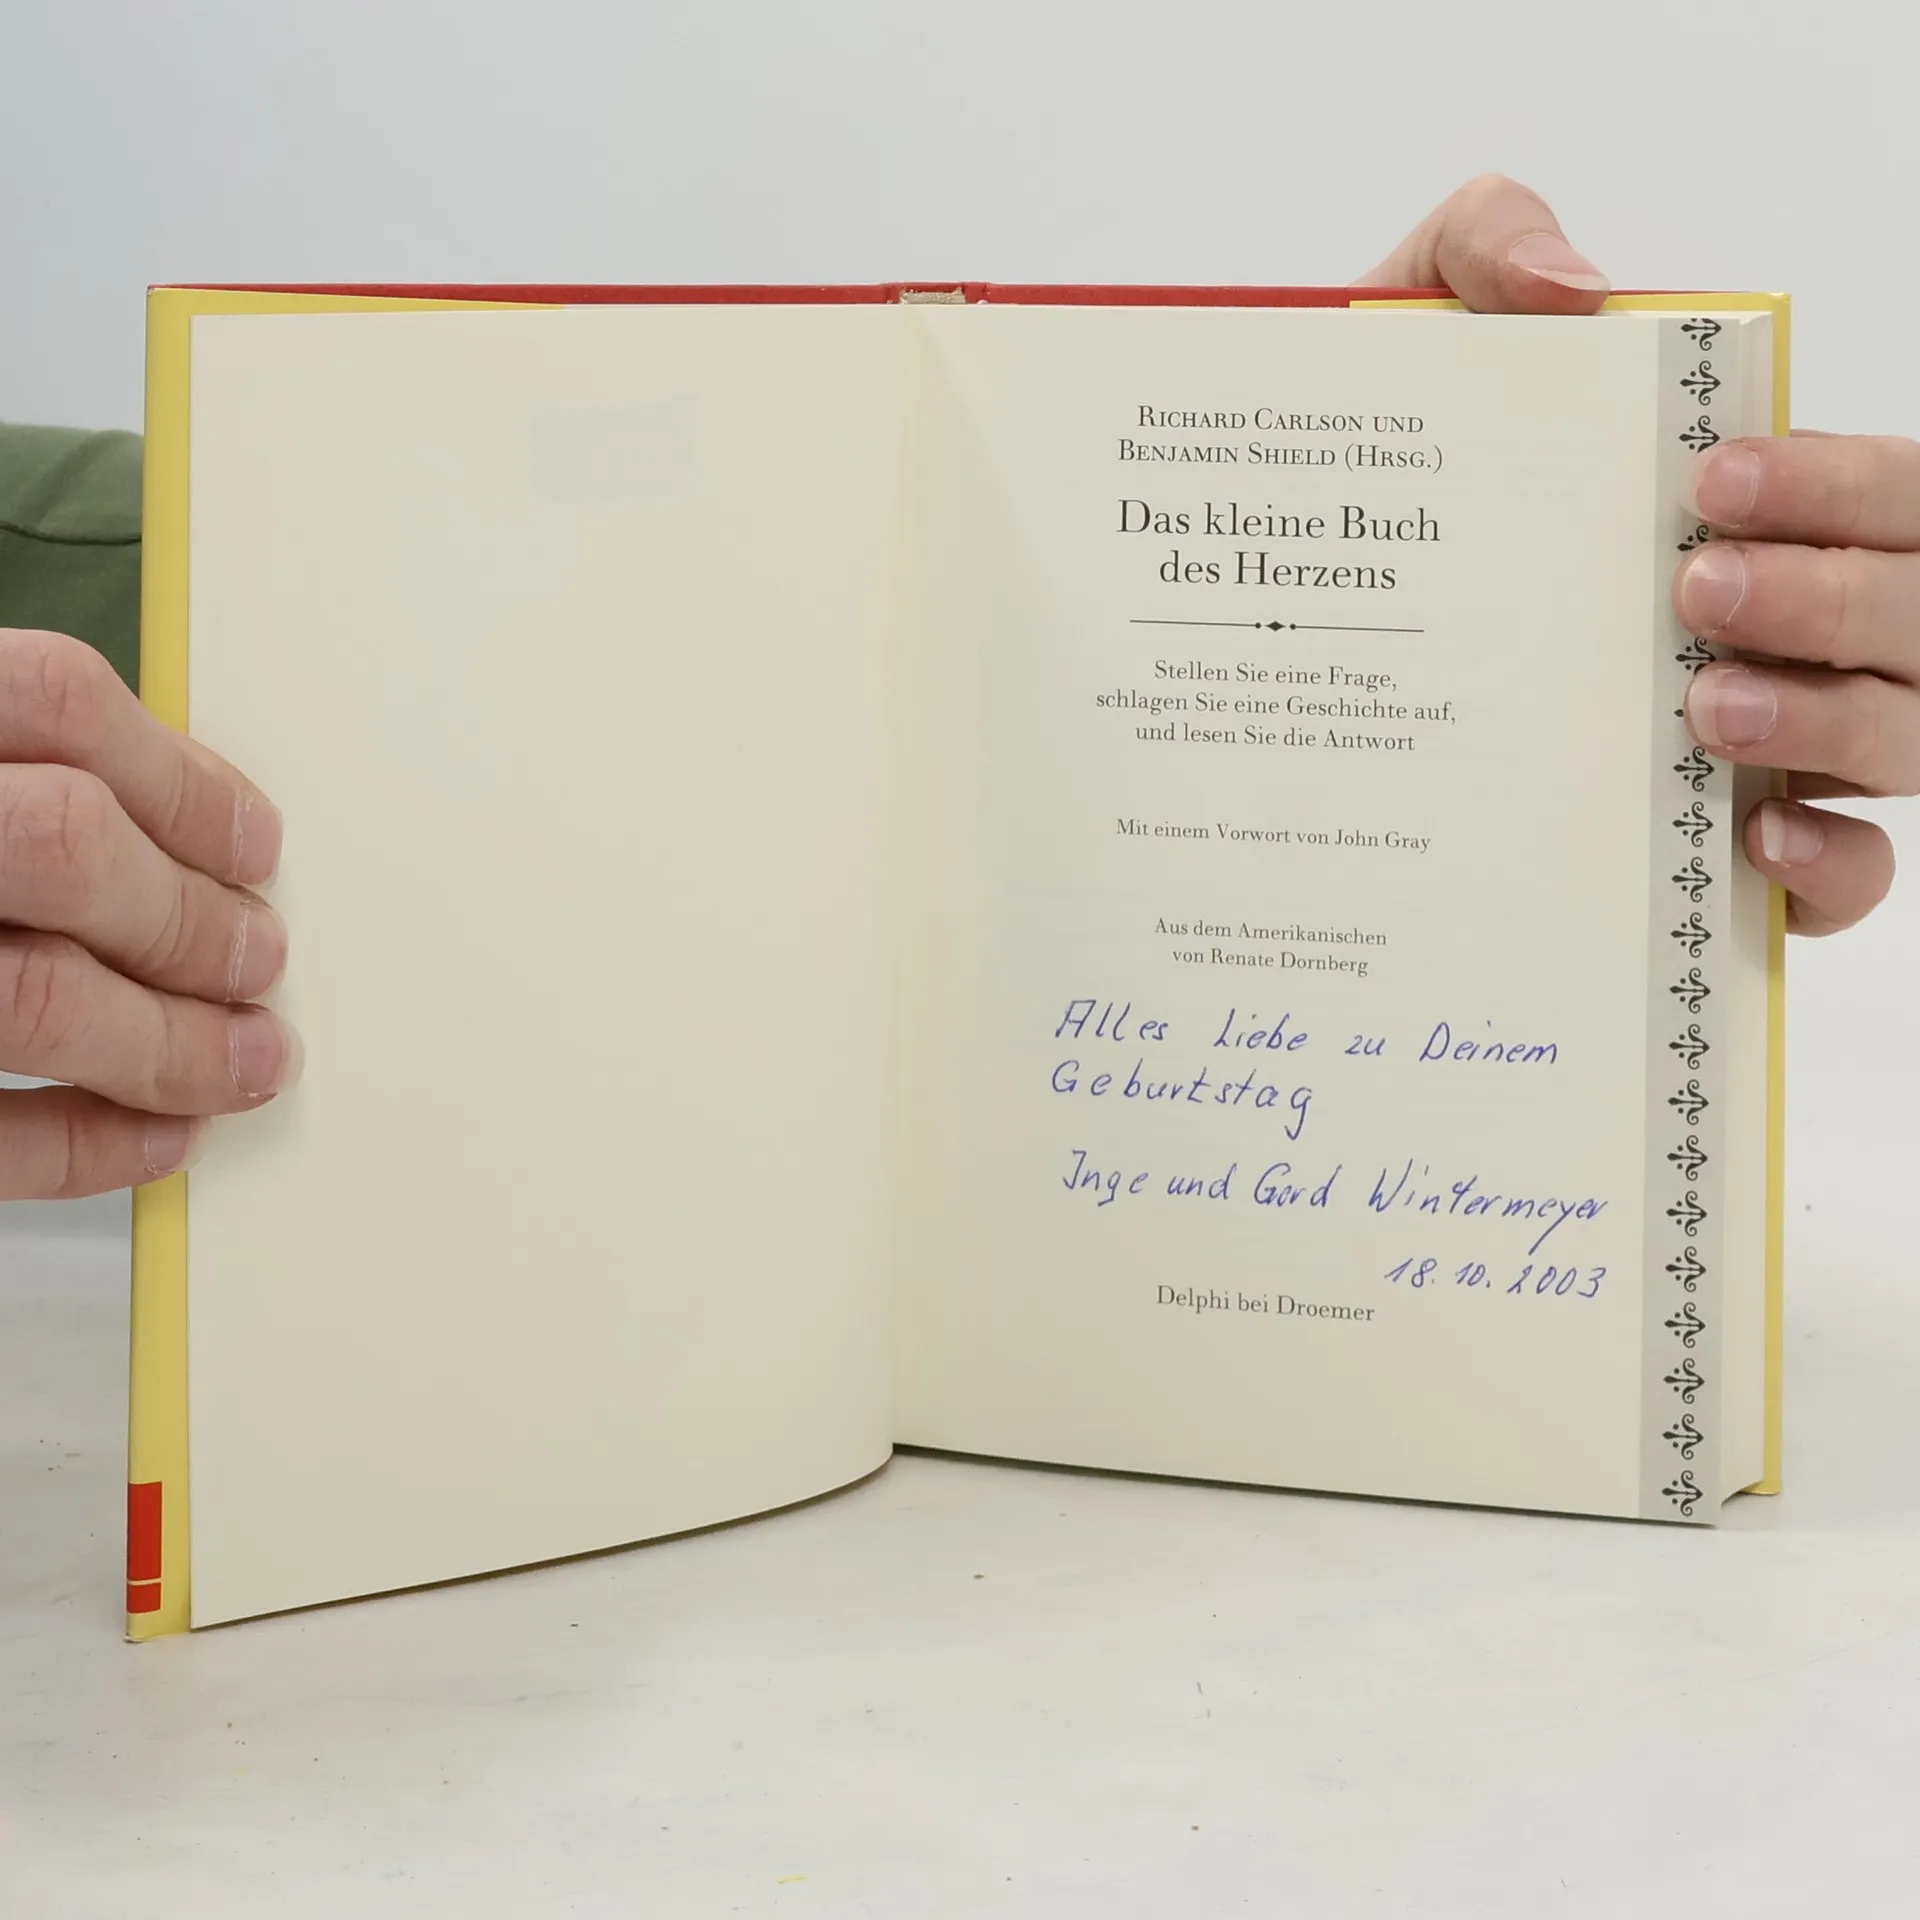 RICHARD CARLSON UND
BENJAMIN SHIELD (HRSG.)
Das kleine Buch
des Herzens
Stellen Sie eine Frage,
schlagen Sie eine Geschichte auf,
und lesen Sie die Antwort
Mit einem Vorwort von John Gray
Aus dem Amerikanischen
von Renate Dornberg
Alles Liebe zu Deinem
Geburtstag
Inge und Gerd Wintermeyer
18. 10. 2003
Delphi bei Droemer